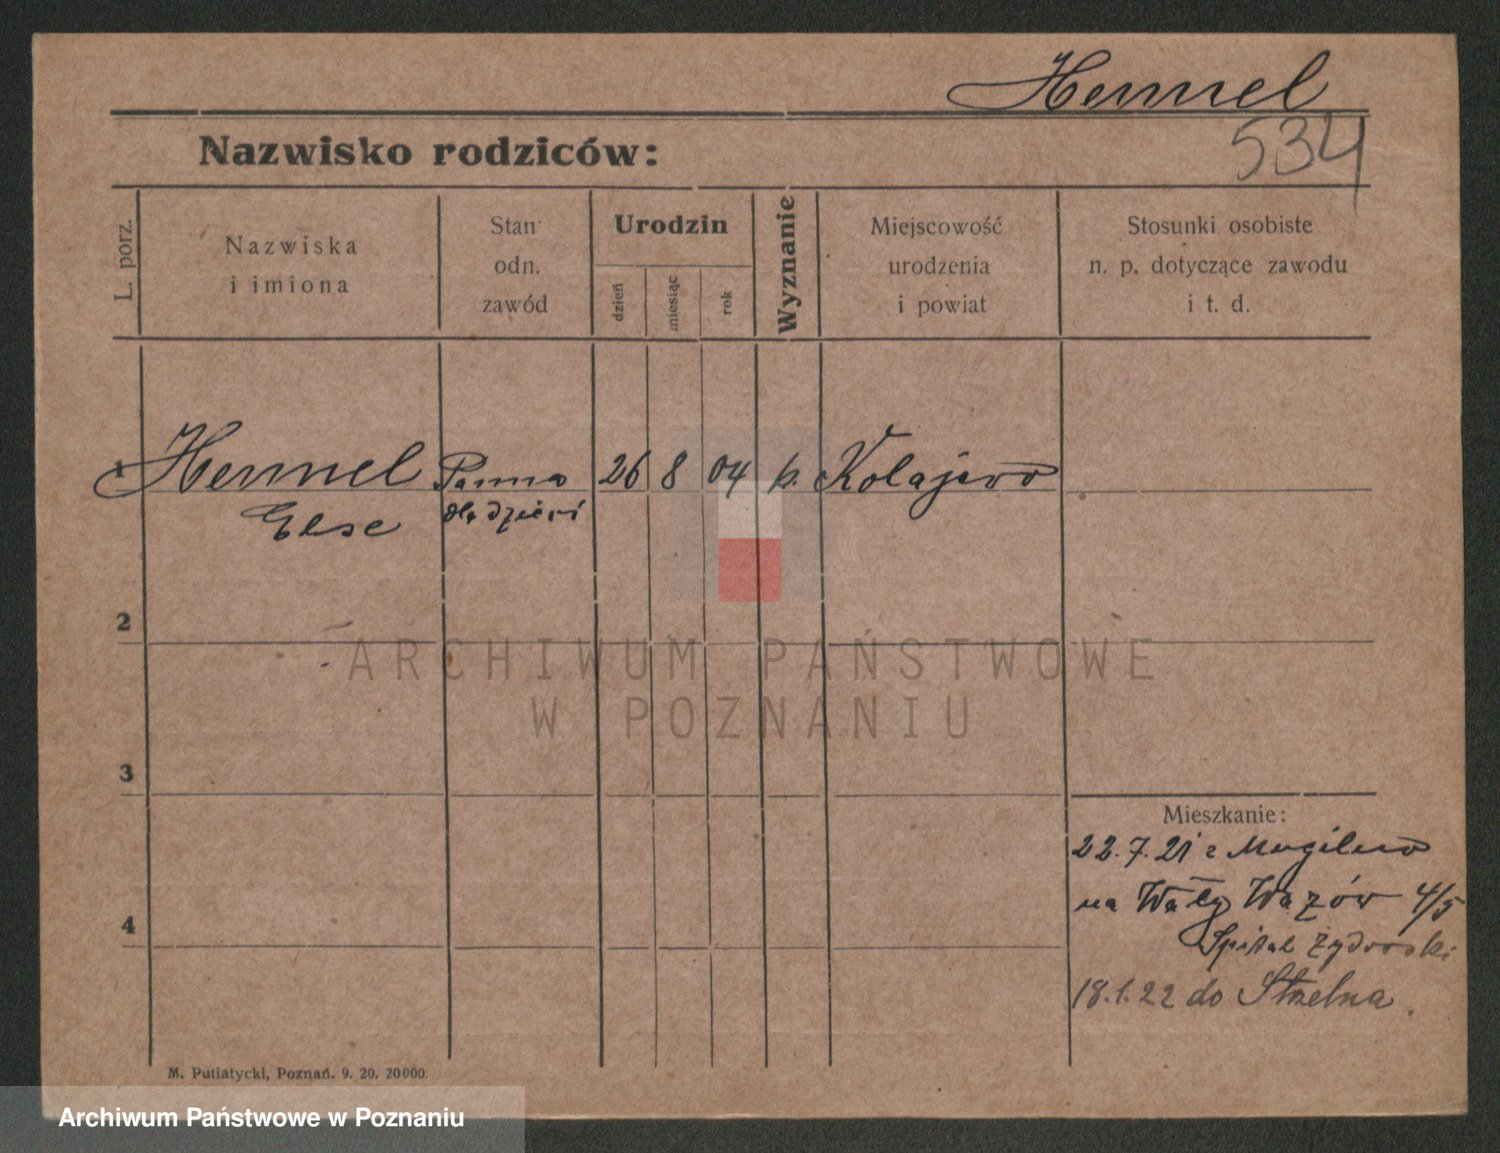 Hennel
534
Nazwisko rodziców:
L. porz.
Nazwiska
i imiona
Stan
odn.
zawód
Urodzin
dzień
miesiąc
rok
Wyznanie
Miejscowość
urodzenia
i powiat
Stosunki osobiste
n. p. dotyczące zawodu
i t. d.
1 Hennel Panna 26 8 04 k. Kołajewo
Else dla dzieci
2
3
4
ARCHIWUM PAŃSTWOWE
W POZNANIU
Mieszkanie:
22.7.21 z Mogilewo
na Wały Wazów 4/5
Spital Żydowski
18.1.22 do Strzelna.
M. Putiatycki, Poznań. 9. 20. 20000.
Archiwum Państwowe w Poznaniu